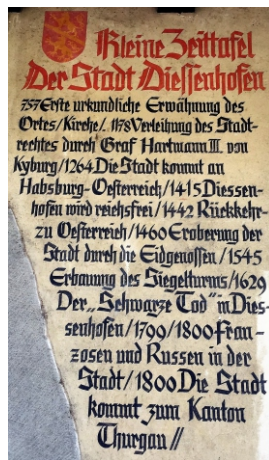 Kleine Zeittafel
Der Stadt Diessenhofen
757 Erste urkundliche Erwähnung des
Ortes/Kirche/. 1178 Verleihung des Stadt-
rechtes durch Graf Hartmann III. von
Kyburg/1264 Die Stadt kommt an
Habsburg-Oesterreich/1415 Diessen-
hofen wird reichsfrei/1442 Rückkehr
zu Oesterreich/1460 Eroberung der
Stadt durch die Eidgenossen/1545
Erbauung des Siegelturms/1629
Der „Schwarze Tod" in Dies-
senhofen/1799/1800 Fran-
zosen und Russen in der
Stadt/1800 Die Stadt
kommt zum Kanton
Thurgau //